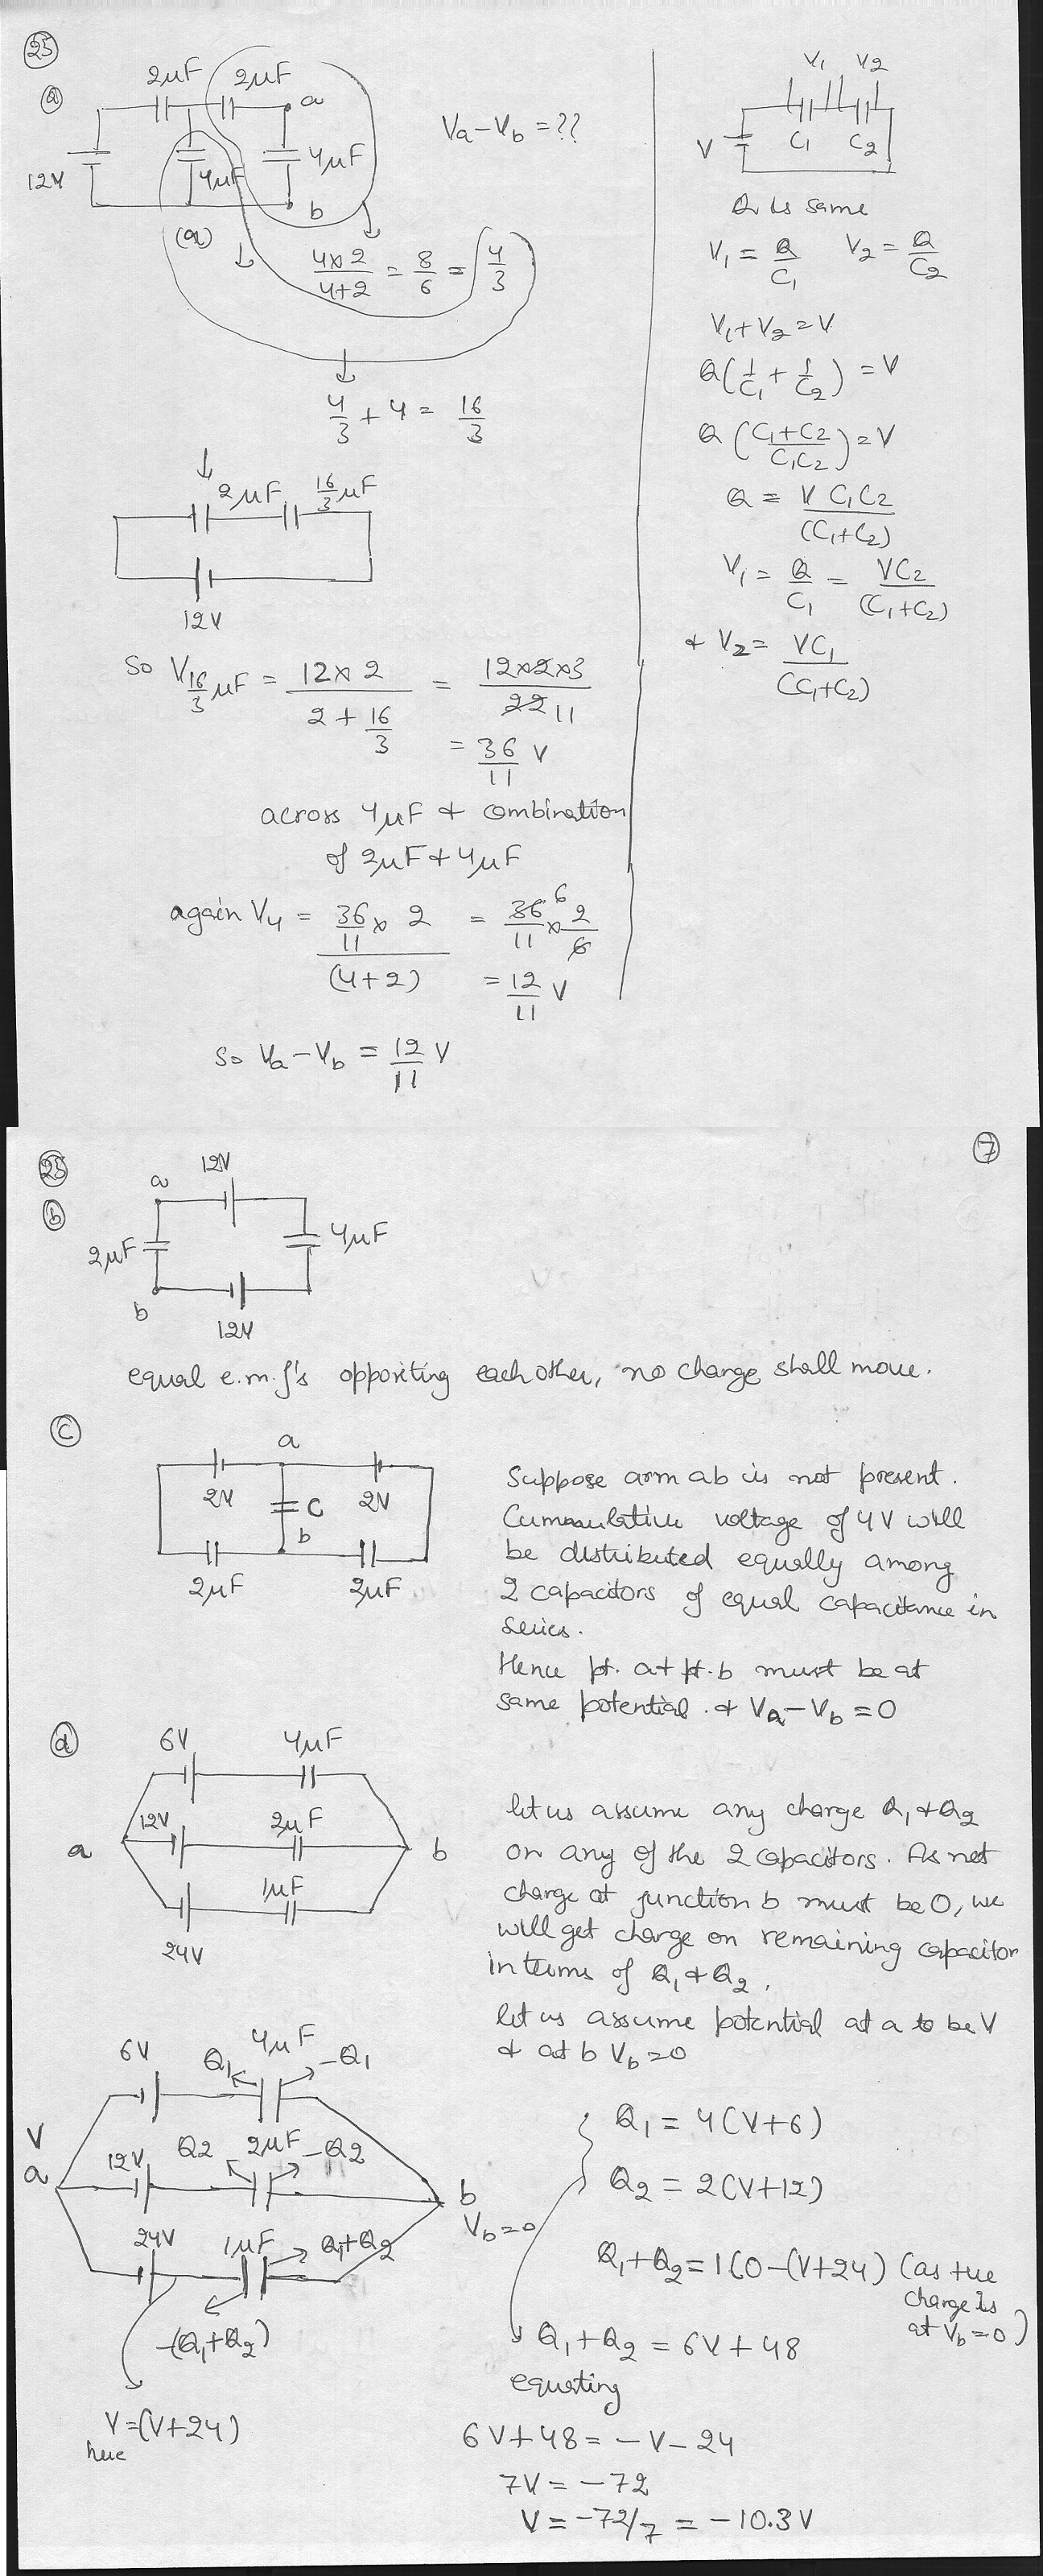 25
a
2μF 2μF
a
12V
4μF
4μF
b
(a)
Va-Vb=??
4×2/4+2 = 8/6 = 4/3
4/3 + 4 = 16/3
2μF 16/3 μF
12V
So V16/3 μF = 12×2/2+16/3 = 12×2×3/22 11
= 36/11 V
across 4μF & combination
of 2μF+4μF
again V4 = 36/11 × 2/(4+2) = 36/11 6 × 2/6
= 12/11 V
So Va-Vb = 12/11 V
V1 V2
V
C1 C2
Q is same
V1 = Q/C1 V2 = Q/C2
V1+V2=V
Q(1/C1 + 1/C2) = V
Q(C1+C2/C1C2) = V
Q = V C1C2/(C1+C2)
V1 = Q/C1 = VC2/(C1+C2)
& V2 = VC1/(C1+C2)
7
25
b
12V
a
2μF
4μF
b
12V
equal e.m.f's oppositing each other, no charge shall move.
C
a
2V C 2V
b
2μF 2μF
Suppose arm ab is not present.
Cummulative voltage of 4V will
be distributed equally among
2 capacitors of equal capacitance in
series.
Hence pt. a & pt. b must be at
same potential. & Va-Vb=0
d
6V 4μF
12V 2μF
a b
1μF
24V
let us assume any charge Q1 & Q2
on any of the 2 capacitors. As net
charge at junction b must be 0, we
will get charge on remaining capacitor
in terms of Q1 & Q2.
let us assume potential at a to be V
& at b Vb=0
6V Q1 4μF -Q1
V
a
12V Q2 2μF -Q2
b
Vb=0
24V 1μF Q1+Q2
-(Q1+Q2)
V=(V+24)
here
Q1 = 4(V+6)
Q2 = 2(V+12)
Q1+Q2 = 1(0-(V+24) (as +ue
charge is
at Vb=0)
Q1+Q2 = 6V+48
equating
6V+48 = -V-24
7V = -72
V = -72/7 = -10.3V